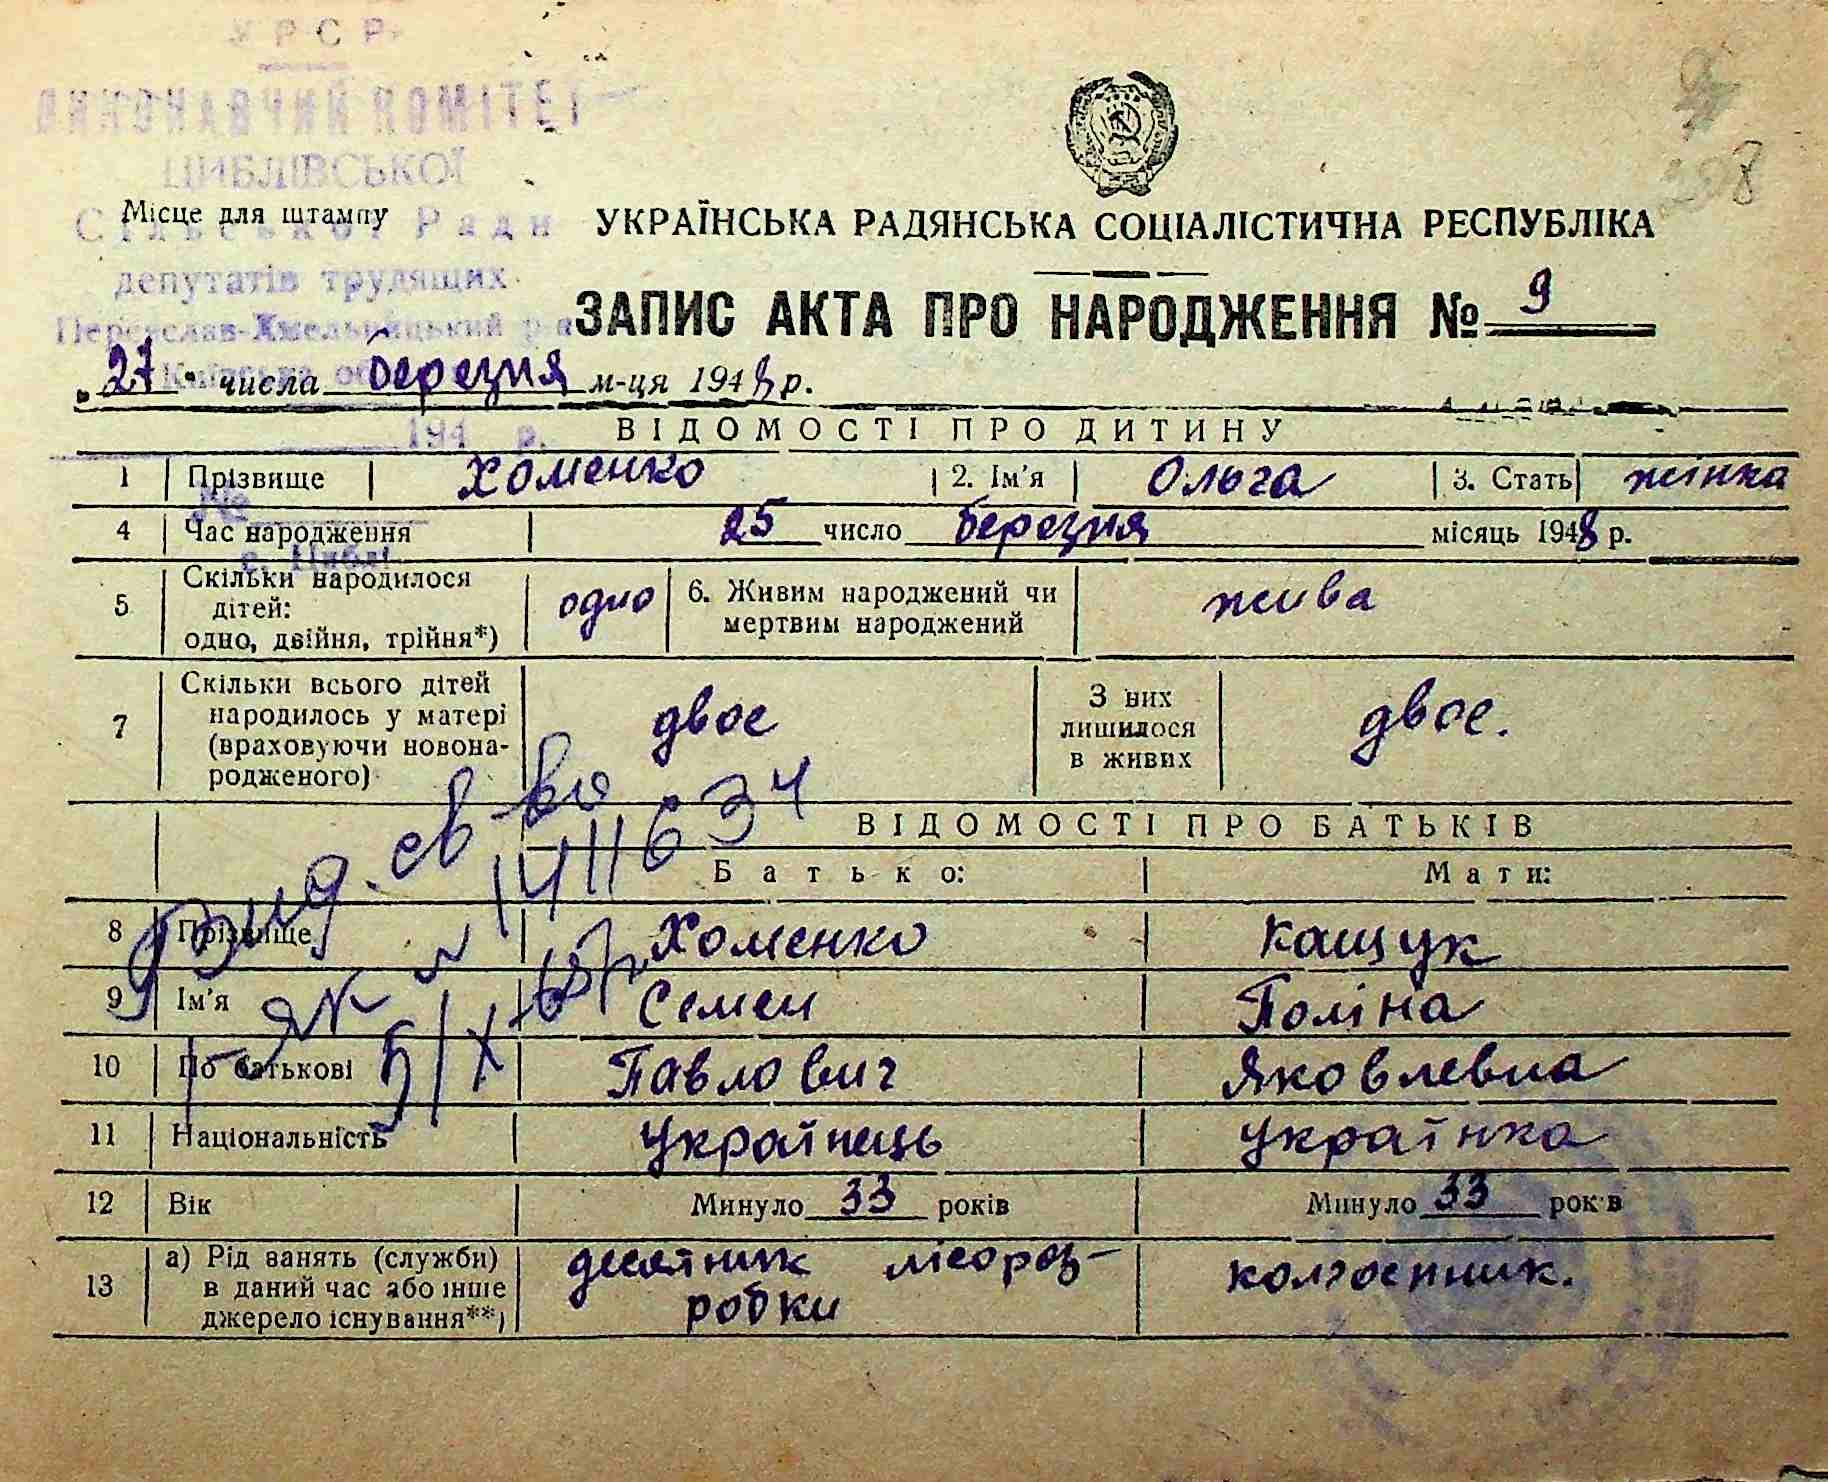 УРСР
ВИКОНАВЧИЙ КОМІТЕТ
ЦИБЛІВСЬКОЇ
Сільської Ради
депутатів трудящих
Переяслав-Хмельницький р-н
Київська об
194 р.
№
с. Циблі
Місце для штампу
УКРАЇНСЬКА РАДЯНСЬКА СОЦІАЛІСТИЧНА РЕСПУБЛІКА
ЗАПИС АКТА ПРО НАРОДЖЕННЯ № 9
„27“ числа березня м-ця 1948 р.
ВІДОМОСТІ ПРО ДИТИНУ
1 Прізвище Хоменко 2. Ім'я Ольга 3. Стать жінка
4 Час народження 25 число березня місяць 1948 р.
5 Скільки народилося дітей: одно, двійня, трійня*) одно 6. Живим народжений чи мертвим народжений жива
7 Скільки всього дітей народилось у матері (враховуючи новонародженого) двоє З них лишилося в живих двоє.
ВІДОМОСТІ ПРО БАТЬКІВ
Батько: Мати:
8 Прізвище Хоменко Кащук
9 Ім'я Семен Поліна
10 По батькові Павлович Яковлевна
11 Національність Українець Українка
12 Вік Минуло 33 років Минуло 33 років
13 а) Рід занять (служби) в даний час або інше джерело існування**) десятник лісорозробки колгоспник.
Выд. св-во
№ 1411634